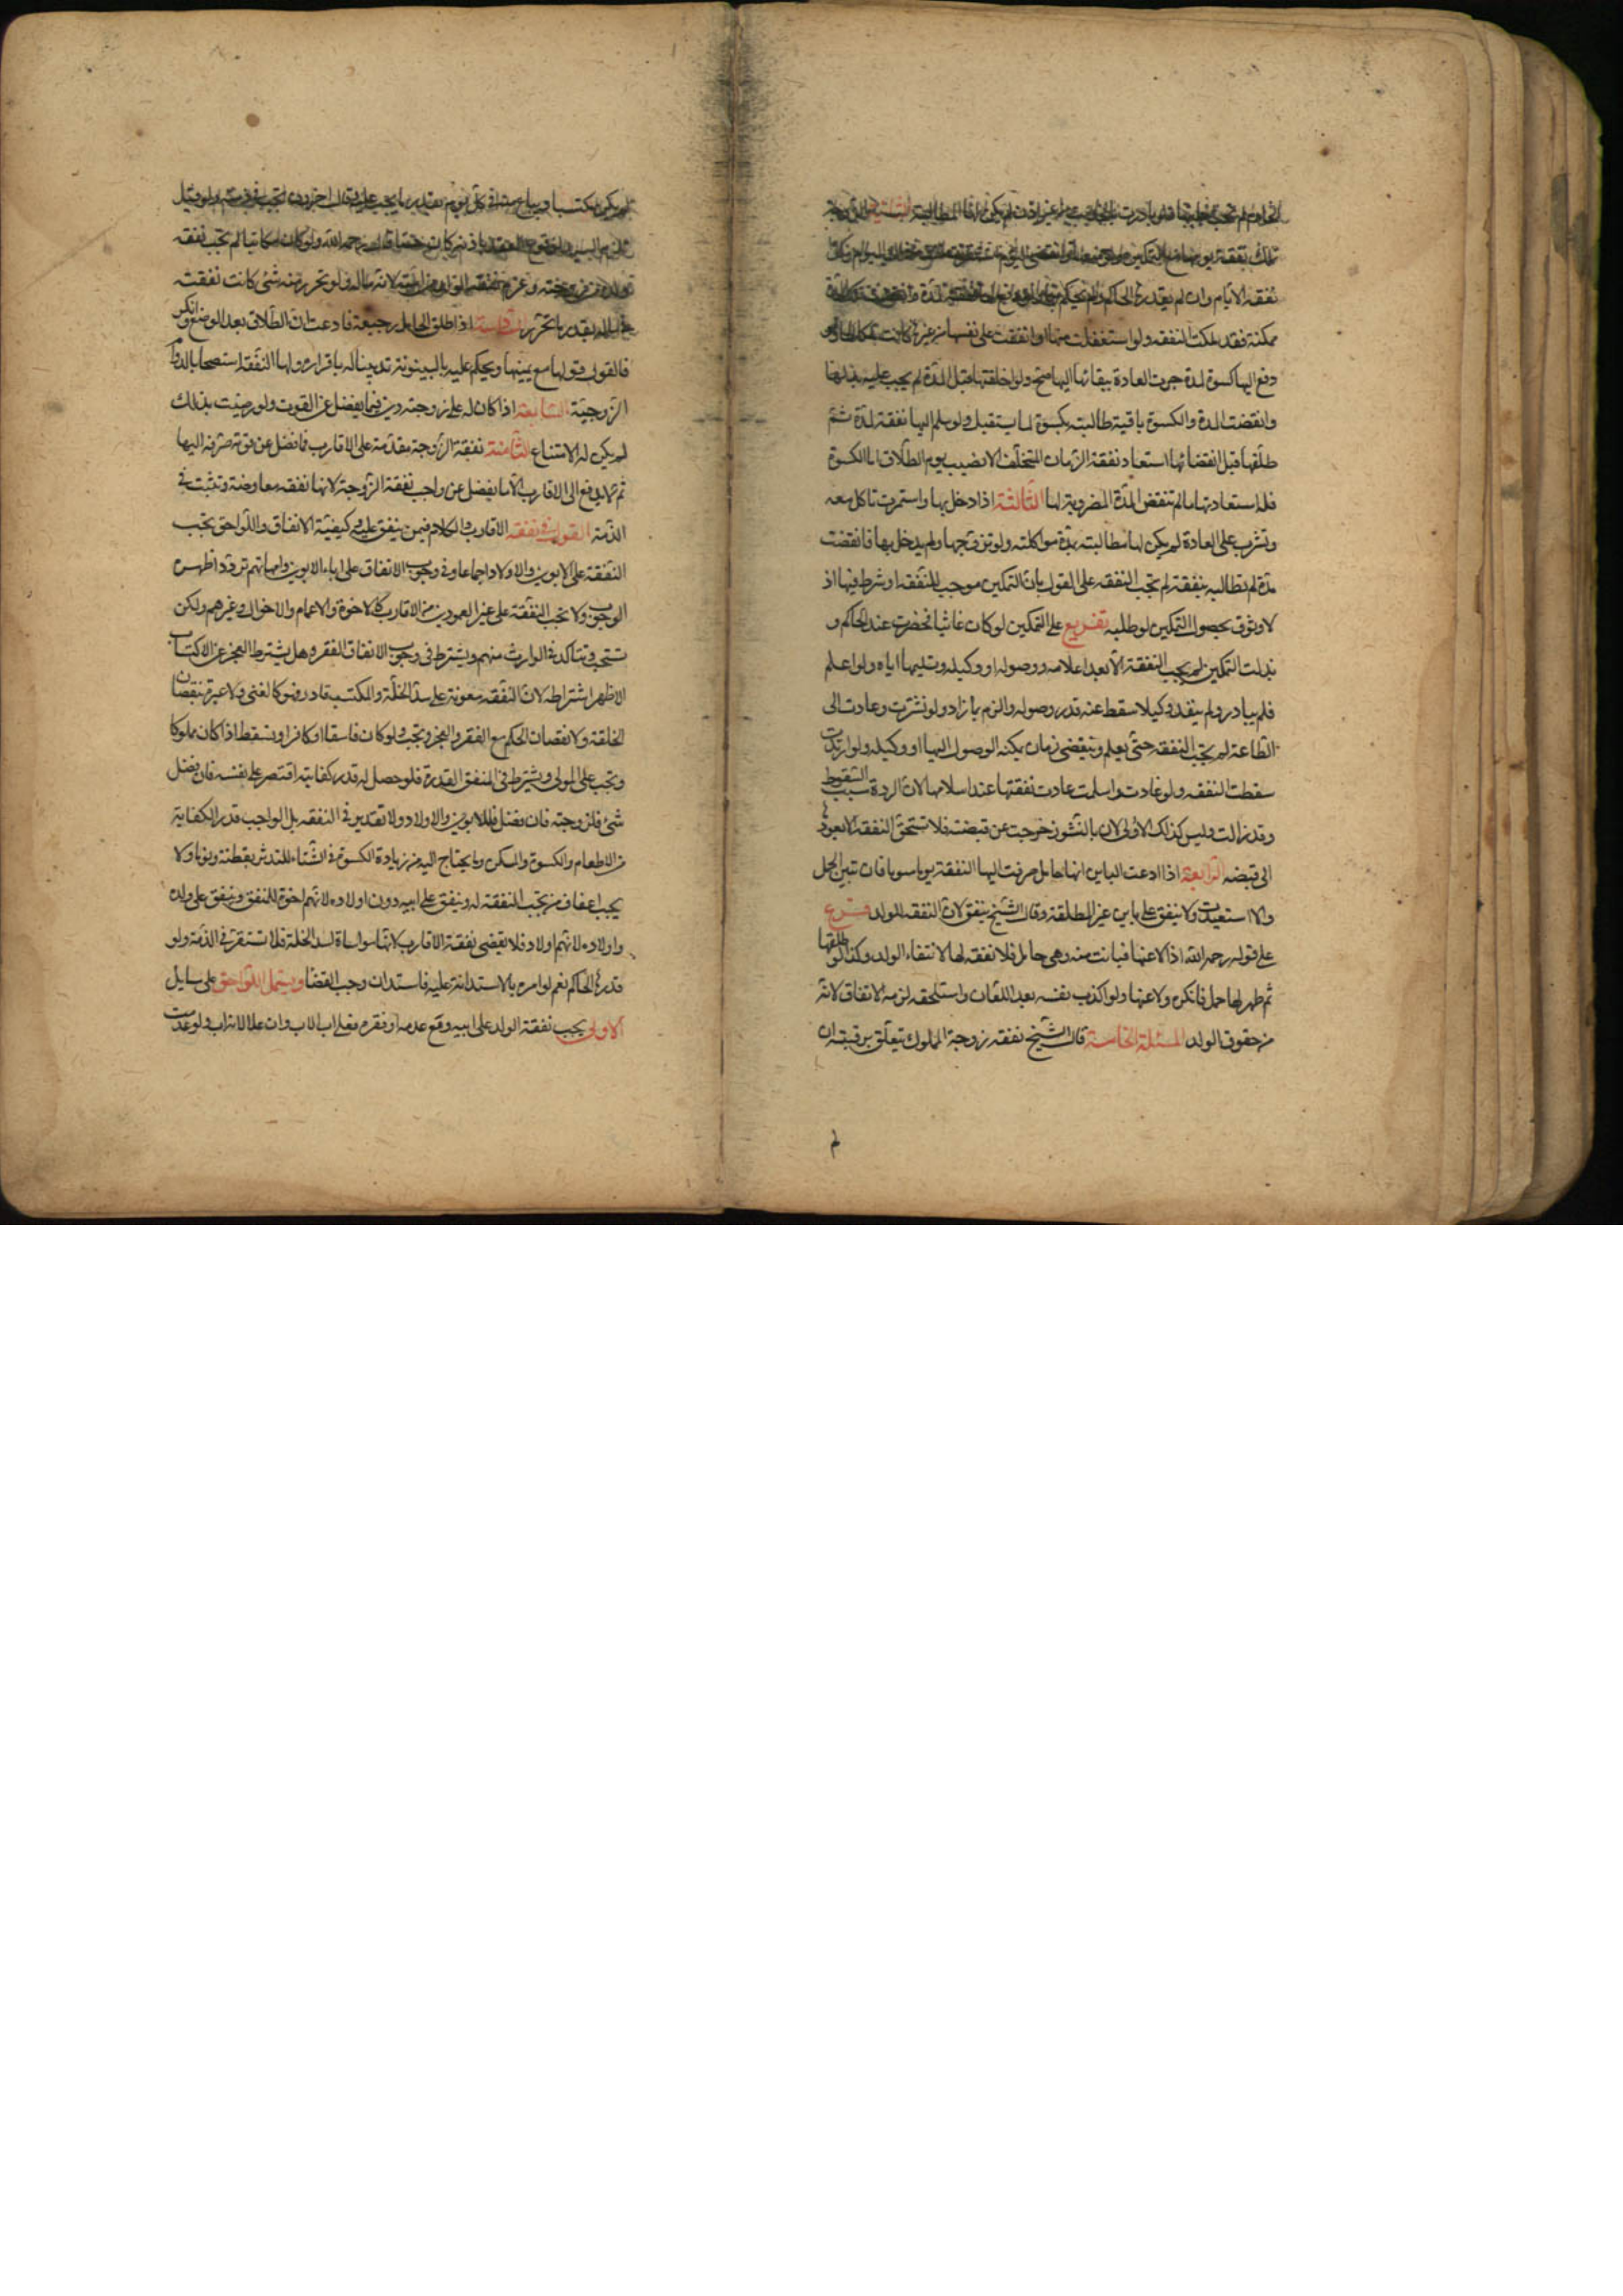 الخادم لم تجب فلو بادرت من غير اذن لم يكن لها المطالبة الثانية الزوجة
تملك نفقة يومها مع التمكين
نفقة الايام وان لم يقدرها الحاكم ولم يحكم بها ولو دفع لها نفقة لمدة وانقضت
ممكنة فقد ملكت النفقه ولو استفضلت منها او انفقت على نفسها من غيرها كانت ملكا لها ولو
دفع اليها كسوة لمدة جرت العادة ببقائها اليها صح ولو اخلقتها قبل المدة لم يجب عليه بذلها
وانقضت المدة والكسوة باقية طالبته بكسوة لما يستقبل ولو سلم اليها نفقة لمدة ثم
طلقها قبل انقضائها استعاد نفقة الزمان المتخلف الا نصيب يوم الطلاق اما الكسوة
فله استعادتها ما لم تنقض المدة المضروبة لها الثالثة اذا دخل بها واستمرت تاكل معه
وتشرب على العادة لم يكن لها مطالبته بمدة مواكلته ولو تزوجها ولم يدخل بها فانقضت
مدة لم تطالبه بنفقة لم تجب النفقه على القول بان التمكين موجب للنفقه او شرط فيها اذ
لا وثوق بحصول التمكين لو طلبه تفريع على التمكين لو كان غائبا فحضرت عند الحاكم و
بذلت التمكين لم يجب النفقة الا بعد اعلامه ووصوله او وكيله وتسليمها اياه ولو اعلم
فلم يبادر ولم ينفذ وكيلا سقط عنه قدر وصوله والزم بما زاد ولو نشزت وعادت الى
الطاعة لم يجب النفقه حتى يعلم وينقضى زمان يمكنه الوصول اليها او وكيله ولو ارتدت
سقطت النفقه ولو غابت واسلمت عادت نفقتها عند اسلامها لان الردة سبب السقوط
وقد زالت وليس كذلك الاولى لان بالنشوز خرجت عن قبضته فلا تستحق النفقه الا بعودها
الى قبضه الرابعة اذا ادعت الباين انها حامل صرفت اليها النفقة يوما بيوما فان تبين الحمل
والا استعيدت ولا ينفق على باين غير المطلقة وقال الشيخ ينفق لان النفقه للولد فرع
على قوله رحمه الله اذا لاعنها فبانت منه وهى حامل فلا نفقه لها لانتفاء الولد وكذا لو طلقها
ثم ظهر لها حمل فانكره ولاعنها ولو اكذب نفسه بعد اللعان واستلحقه لزمه الانفاق لانه
من حقوق الولد المسئلة الخامسة قال الشيخ نفقه زوجة المملوك يتعلق برقبته ان
لم
لم يكن مكتسبا ويباع منه فى كل يوم بقدر ما يجب عليه وقال اخرون تجب فى ذمته ولو قيل
يلزم السيد لوقوع العقد باذنه كان حسنا وقال رحمه الله ولو كان مكاتبا لم تجب نفقه
ولده من زوجته وتلزم نفقه الولد من امته لانه ماله ولو تحرر منه شئ كانت نفقته
فى ماله بقدر ما تحرر السادسة اذا طلق الحامل رجعية فادعت ان الطلاق بعد الوضع وانكر
فالقول قولها مع يمينها ويحكم عليه بالبينونة تدينا له باقراره ولها النفقة استصحابا لدوام
الزوجية السابعة اذا كان له على زوجته دين فيما يفضل عن القوت ولو رضيت بذلك
لم يكن له الامتناع الثامنة نفقة الزوجة مقدمة على الاقارب فما فضل عن قوته صرفه اليها
ثم لا يدفع الى الاقارب الا ما يفضل عن واجب نفقة الزوجة لانها نفقه معاوضة وتثبت فى
الذمة القول فى نفقه الاقارب والكلام فيمن ينفق عليه وكيفية الانفاق واللواحق تجب
النفقة على الابوين والاولاد اجماعا وفى وجوب الانفاق على اباء الابوين وامهاتهم تردد اظهره
الوجوب ولا تجب النفقة على غير العمودين من الاقارب كالاخوة والاعمام والاخوال وغيرهم ولكن
تستحب وتتاكد فى الوارث منهم ويشترط فى وجوب الانفاق الفقر وهل يشترط العجز عن الاكتساب
الاظهر اشتراطه لان النفقه معونة على سد الخلة والمكتسب قادر فهو كالغنى ولا عبرة بنقصان
الخلقة ولا نقصان الحكم مع الفقر والعجز وتجب ولو كان فاسقا او كافرا ويسقط اذا كان مملوكا
وتجب على المولى ويشترط فى المنفق القدرة فلو حصل له قدر كفايته اقتصر على نفسه فان فضل
شئ فلزوجته فان فضل فللابوين والاولاد ولا تقدير فى النفقه بل الواجب قدر الكفاية
من الاطعام والكسوة والمسكن وما يحتاج اليه من زيادة الكسوة فى الشتاء للتدثر يقظة ونوما ولا
يجب اعفاف من تجب النفقة له وينفق على ابيه دون اولاده لانهم اخوة للمنفق وينفق على ولده
واولاده لانهم اولاد فلا يقضى نفقة الاقارب لانها مواساة لسد الخلة فلا تستقر فى الذمة ولو
قدرها الحاكم نعم لو امره بالاستدانة عليه فاستدان وجب القضا ويشتمل اللواحق على مسايل
الاولى يجب نفقة الولد على ابيه ومع عدمه او فقره فعلى اب الاب وان علا لانه اب ولو عدمت